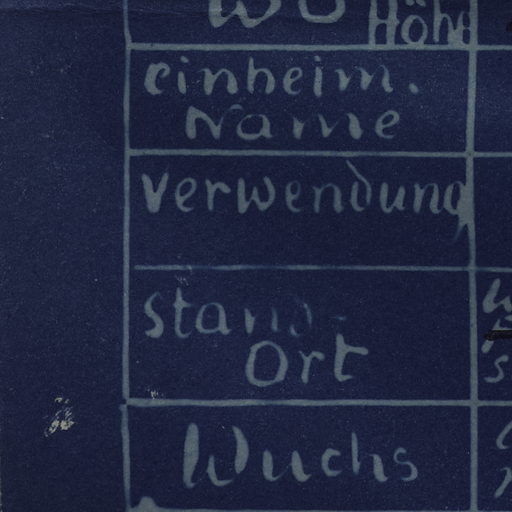 wo Höhe
einheim.
Name
verwendung
stand-
Ort
Wuchs